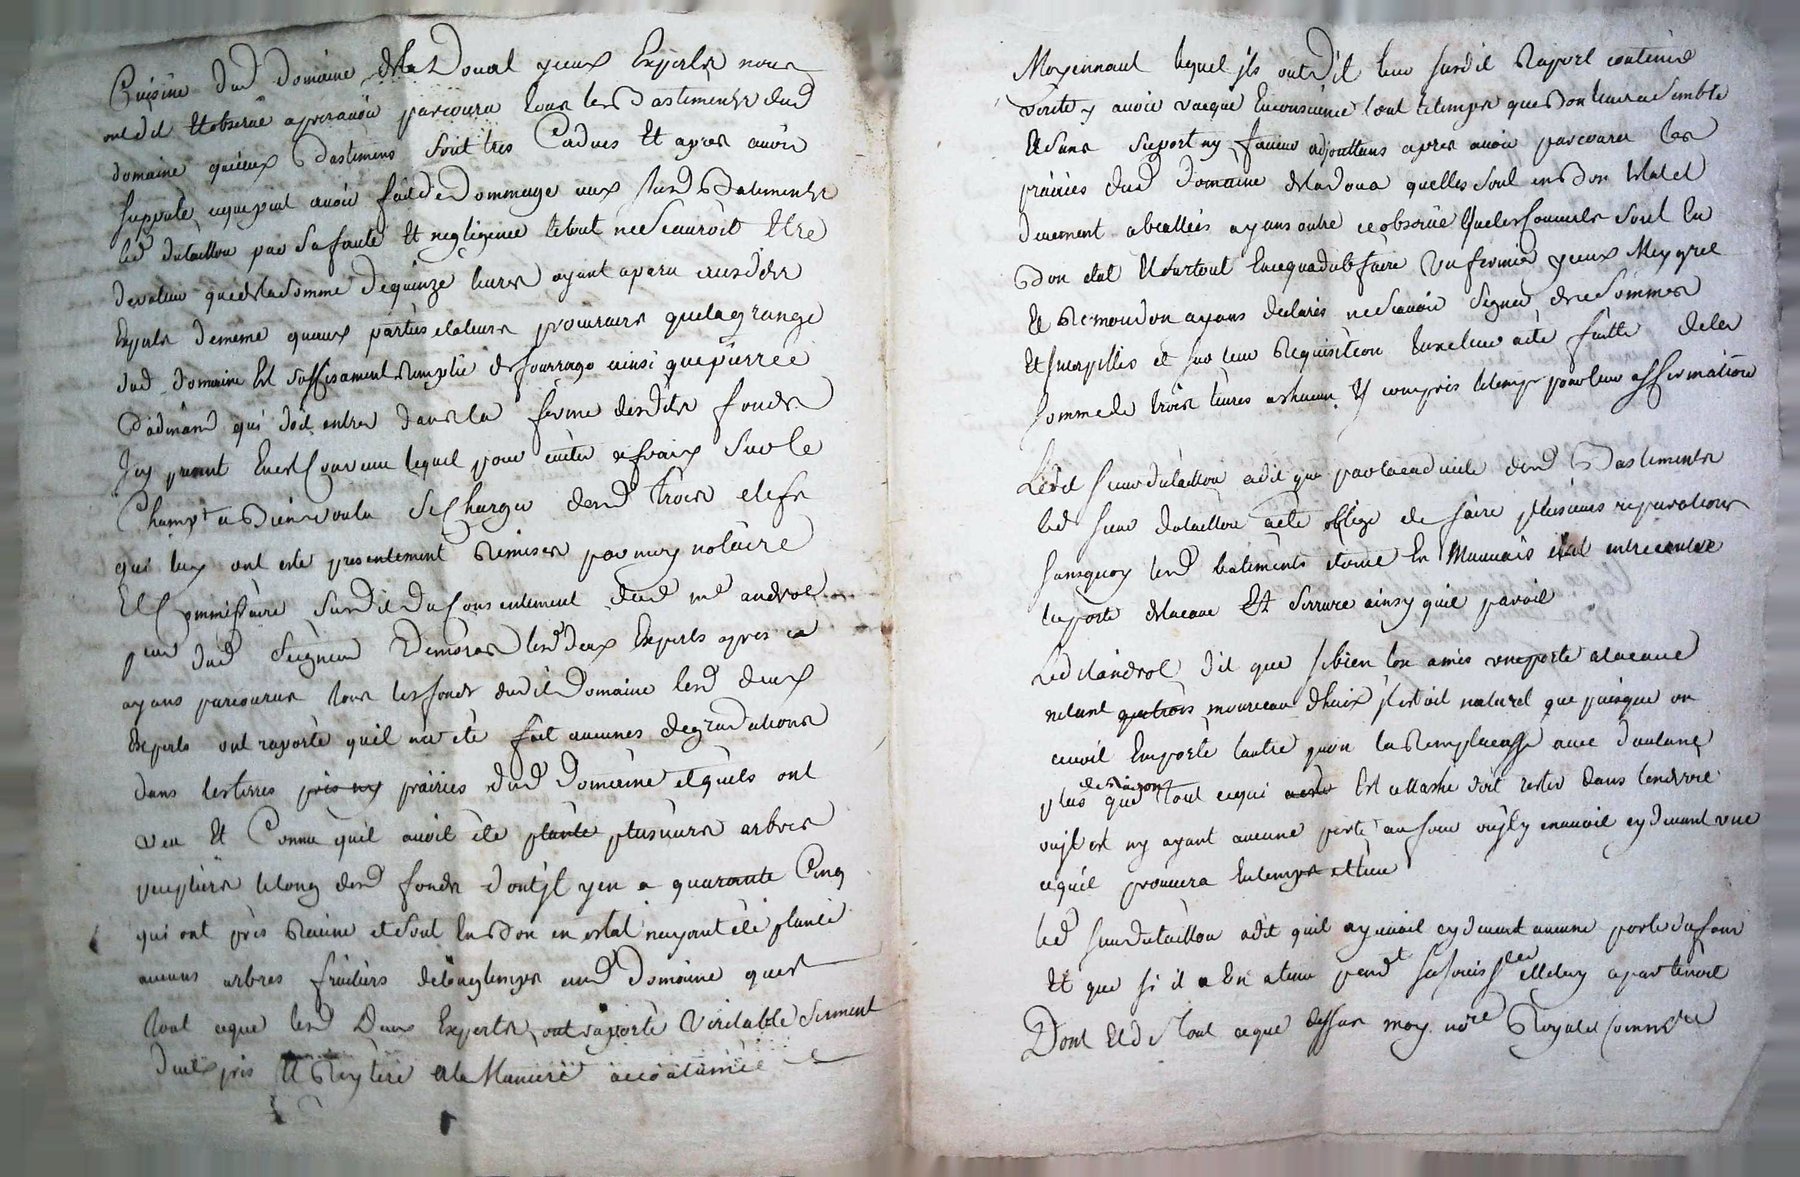 Cuisine dud domaine dela Doual yceux Experts nous
ont dit Et observé apres avoir parcouru tous les Bastiments dud
domaine qu'iceux Bastimens sont tres Caducs Et apres avoir
supputé ce que peut avoir fait de dommage aux susd Batiments
led dutaillou par sa faute Et negligence le tout ne Scauroit Etre
de valeur que de la Somme de quinze livres ayant aparu ausdits
Experts de meme quaux parties et a leurs procureurs que la grange
dud domaine Est suffisament Remplie de fourrage ainsi que pierre
qui doit entrer dans la ferme desdits fonds
Icy present lequel pour eviter a fraix Sur le
Champ a Bien voulu Se Charger desd trois clefs
qui luy ont esté presentement Remises par moy notaire
Et Commissaire Susdit du Consentement dud me androl
pour dud Seigneur lesd deux Experts apres ce
ayans parcourus tous les fonds dudit Domaine lesd deux
Experts ont raporté quil n'a été fait aucunes degradations
dans les terres prairies dud Domaine et quils ont
veu Et Connu quil avoit été planté plusieurs arbres
peupliers le long desd fonds dont jl y en a quarante Cinq
qui ont pris Racine et sont En Bon en estat n'ayant été planté
aucuns arbres fruitiers de longtemps aud Domaine quest
tout ce que lesd Deux Experts ont raporté Veritable Serment
d'eux pris Et Reytéré a la Maniere accoutumée
Moyennant lequel jls ont dit leur susdit Raport contenir
verité y avoir vacqué En conscience tout le temps que Bon leur a semblé
Et sans suport ny faveur adjouttans apres avoir parcouru les
prairies dud domaine dela doua quelles sont en Bon Etat et
duement abeallées ayans outre ce observé que les sont En
Bon etat Et surtout En ce qua dub faire Un fermier yceux Meygret
Et Remondon ayans declarés ne Scavoir Signer de ce Sommés
Et jnterpellés et sur leur Requisition leur acte faitte de la
somme de trois livres a chacun Y compris le temps pour leur affirmation
Ledit sieur dutaillou a dit que par la caducité desd Bastiments
led sieur dutaillou a été obligé de faire plusieurs reparations
sans quoy lesd batiments etoint En Mauvais état entre autre
la porte de la cave Et Serrure ainsy quil paroit
Led dit androl dit que si bien lon a mis une porte a la cave
n'etant morceau d'haix jl estoit naturel que puisque on
avoit Emporté lautre quon la Remplacasse avec d'autant
de Raison
plus que tout ce qui Est attaché doit rester dans lendroit
ou jl est ny ayant aucune porte au four ou jl y en avoit cy devant une
ce quil prouvera En temps et lieu
led sieur dutaillou a dit quil ny avoit cy devant aucune porte du four
Et que si il a En a tenu pendt sa jouissce elle luy apartenoit
Dont Et de tout ce que dessus moy nore Royal et Commre